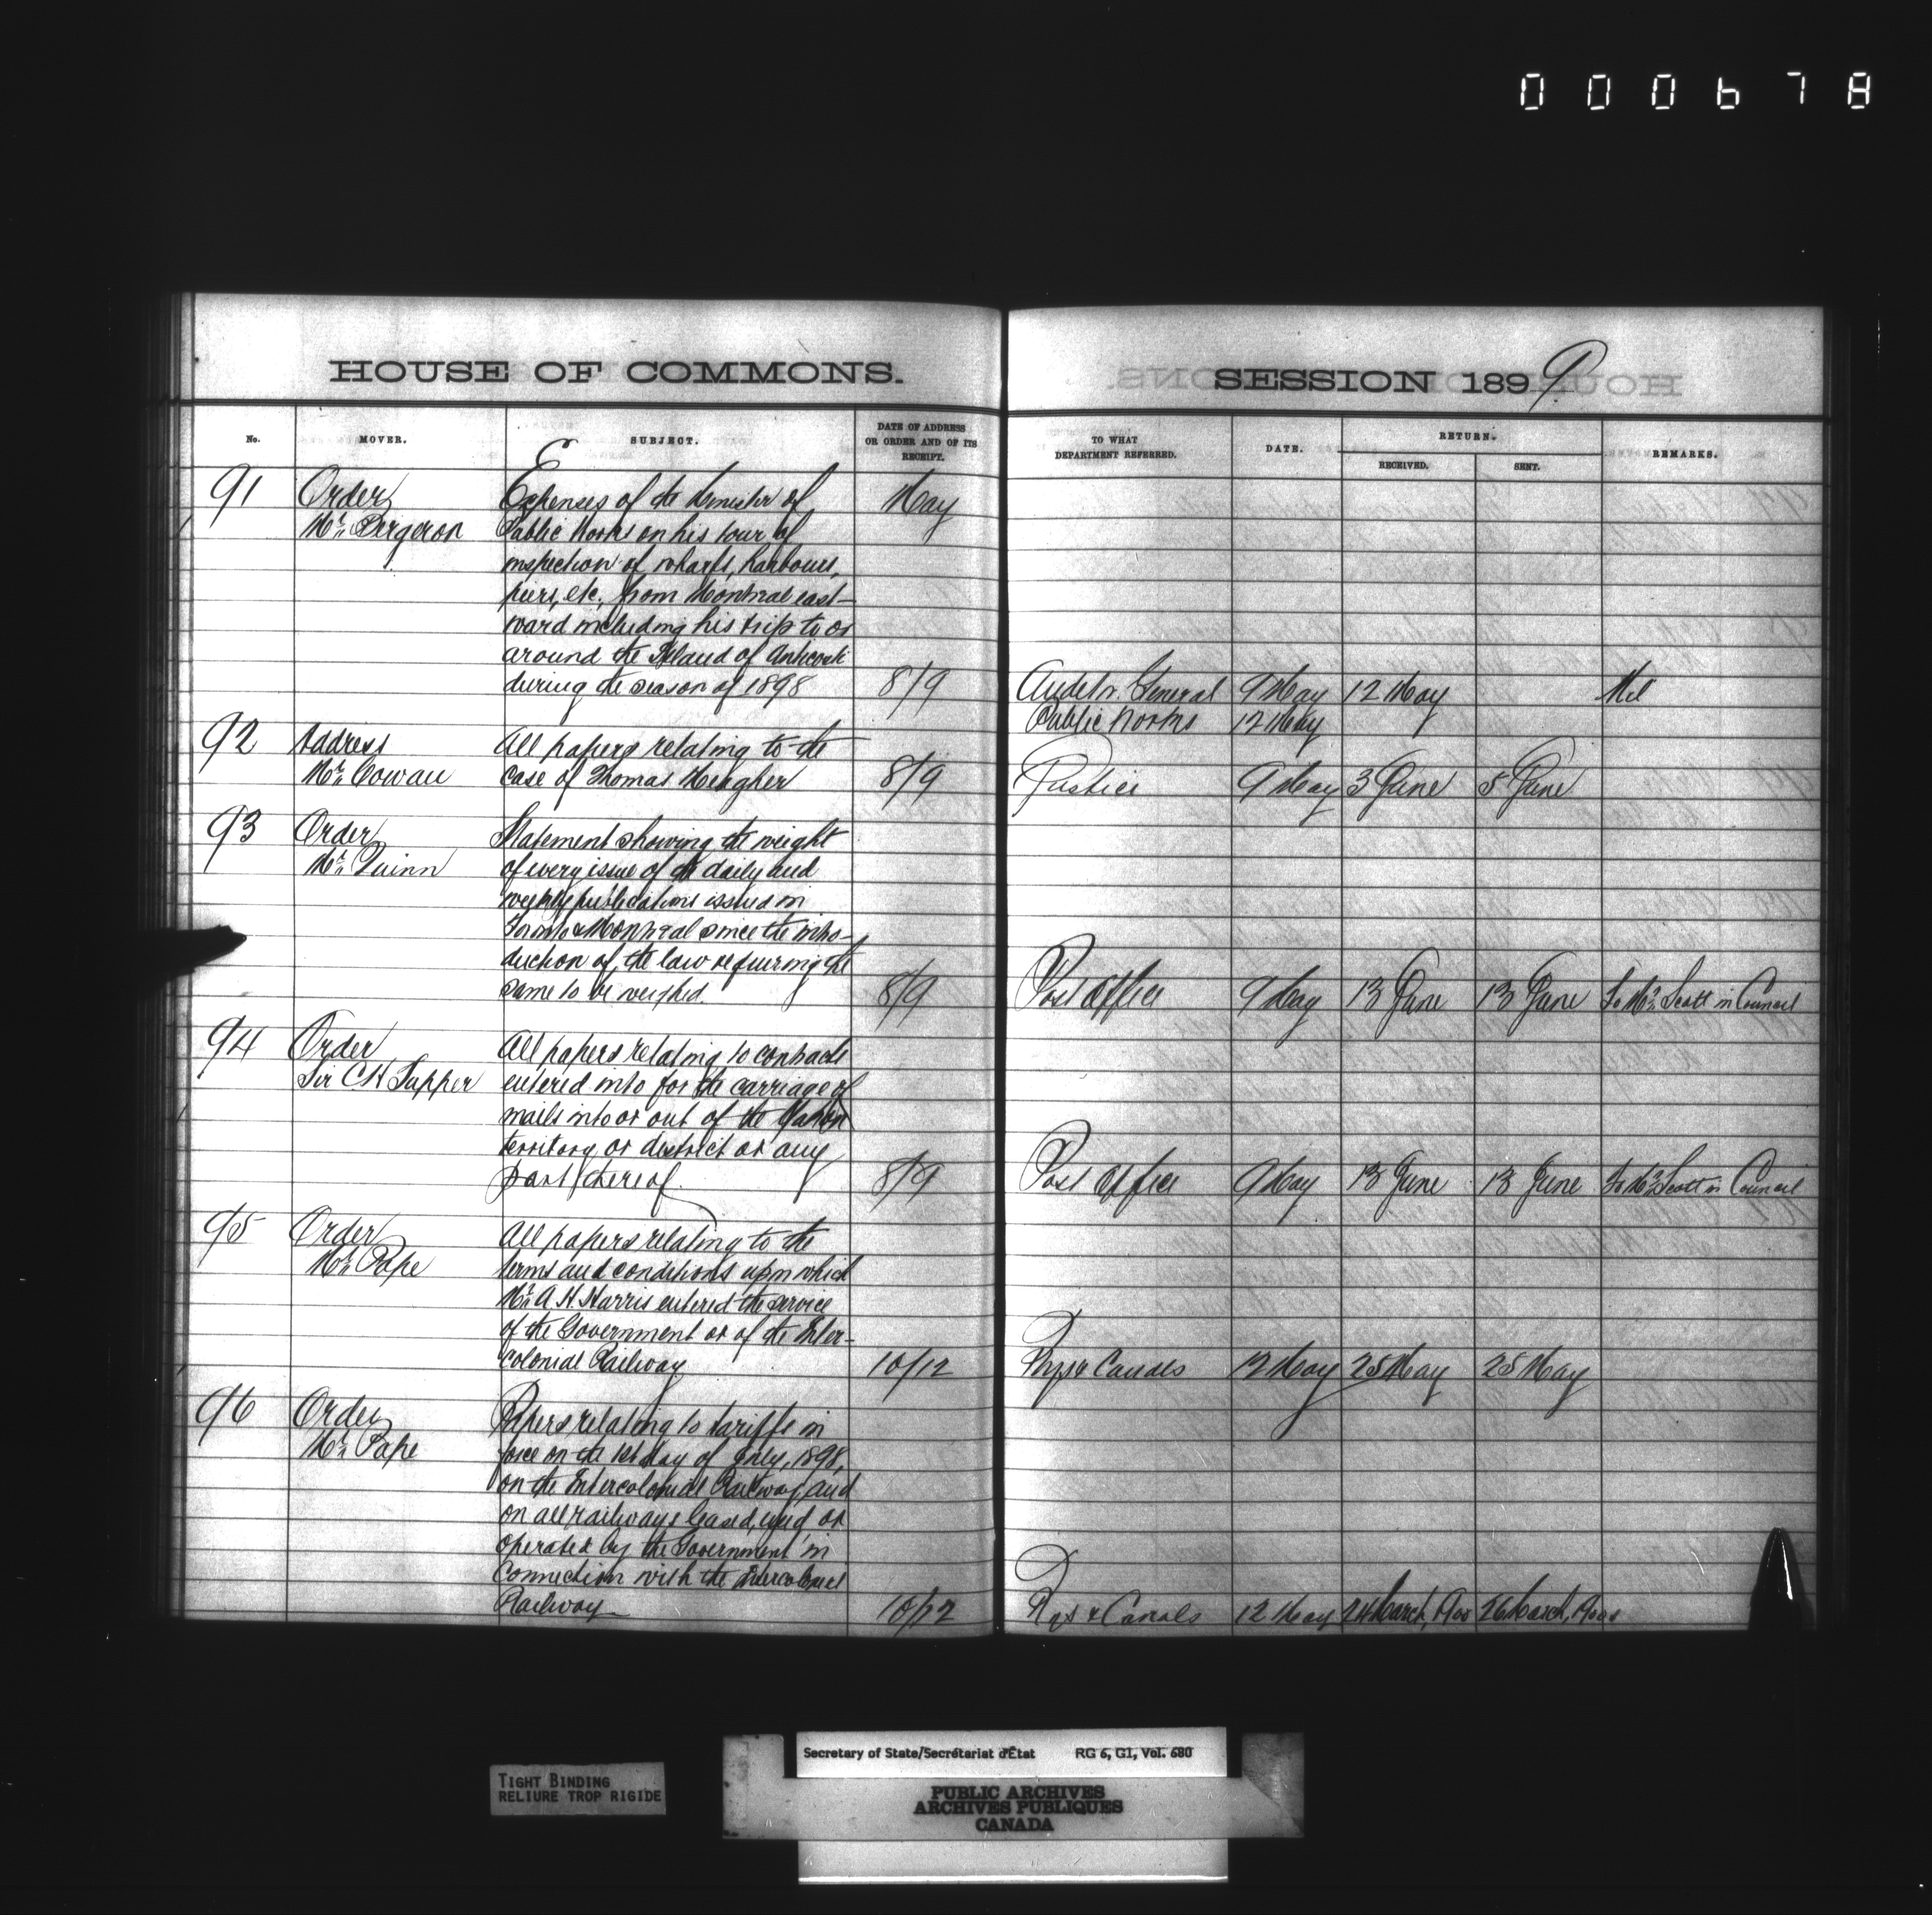 000678
HOUSE OF COMMONS.
SESSION 1899
No.
MOVER.
SUBJECT.
DATE OF ADDRESS
OR ORDER AND OF ITS
RECEIPT.
TO WHAT
DEPARTMENT REFERRED.
DATE.
RETURN.
RECEIVED.
SENT.
REMARKS.
91 Order Expenses of the Minister of May
Mr. Bergeron Public Works on his tour of
inspection of wharfs, harbours,
piers, etc. from Montreal east-
ward including his trip to or
around the Island of Anticosti
during the season of 1898 8/9 Auditor General 9 May 12 May Nil
Public Works 12 May
92 Address All papers relating to the
Mr. Cowan case of Thomas Meagher 8/9 Justice 9 May 3 June 5 June
93 Order Statement showing the weight
Mr. Quinn of every issue of the daily and
weekly publications issued in
Toronto & Montreal since the intro-
duction of the law requiring the
same to be weighed. 8/9 Post Office 9 May 13 June 13 June To Mr. Scott in Council
94 Order All papers relating to contracts
Sir C H Tupper entered into for the carriage of
mails into or out of the Yukon
territory or district or any
part thereof. 8/9 Post Office 9 May 13 June 13 June To Mr. Scott in Council
95 Order All papers relating to the
Mr. Pope terms and conditions upon which
Mr. A. H. Harris entered the service
of the Government or of the Inter-
colonial Railway 10/12 Rys & Canals 12 May 25 May 25 May
96 Order Papers relating to tariffs in
Mr. Pope force on the 1st day of July, 1898,
on the Intercolonial Railway, and
on all railways leased, used or
operated by the Government in
connection with the Intercolonial
Railway 10/12 Rys & Canals 12 May 24 March, 1900 26 March, 1900
TIGHT BINDING
RELIURE TROP RIGIDE
Secretary of State/Secrétariat d'État RG 6, G1, Vol. 680
PUBLIC ARCHIVES
ARCHIVES PUBLIQUES
CANADA